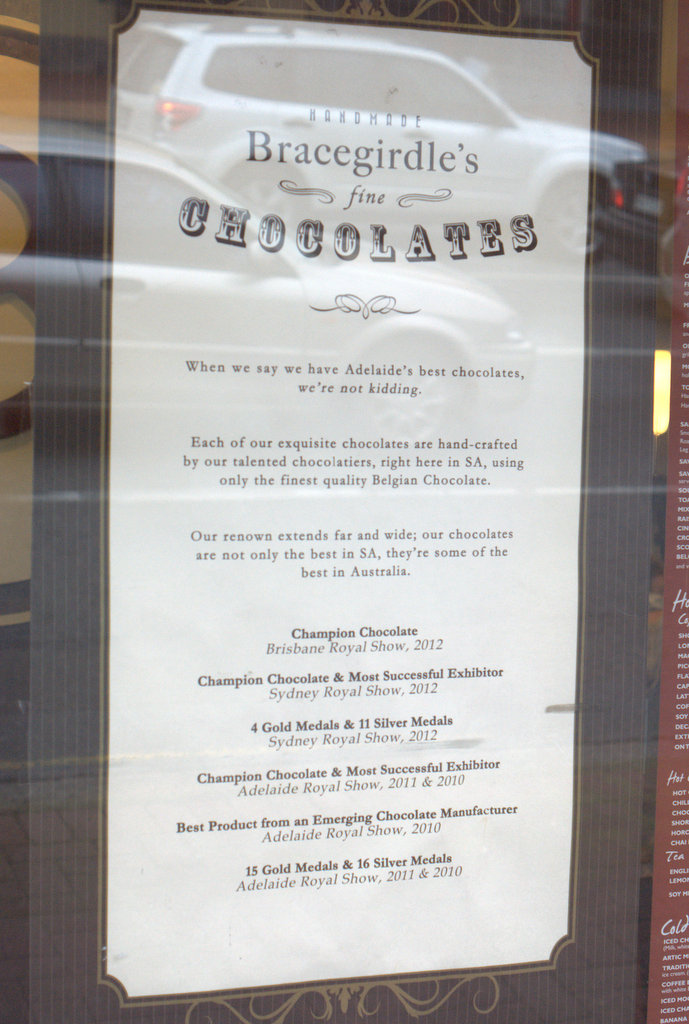 HANDMADE
Bracegirdle's
fine
CHOCOLATES
When we say we have Adelaide's best chocolates,
we're not kidding.
Each of our exquisite chocolates are hand-crafted
by our talented chocolatiers, right here in SA, using
only the finest quality Belgian Chocolate.
Our renown extends far and wide; our chocolates
are not only the best in SA, they're some of the
best in Australia.
Champion Chocolate
Brisbane Royal Show, 2012
Champion Chocolate & Most Successful Exhibitor
Sydney Royal Show, 2012
4 Gold Medals & 11 Silver Medals
Sydney Royal Show, 2012
Champion Chocolate & Most Successful Exhibitor
Adelaide Royal Show, 2011 & 2010
Best Product from an Emerging Chocolate Manufacturer
Adelaide Royal Show, 2010
15 Gold Medals & 16 Silver Medals
Adelaide Royal Show, 2011 & 2010
Hot
HOT
Tea
SOY
Cold
ICED
COFFEE
ICED
ICED
BANANA